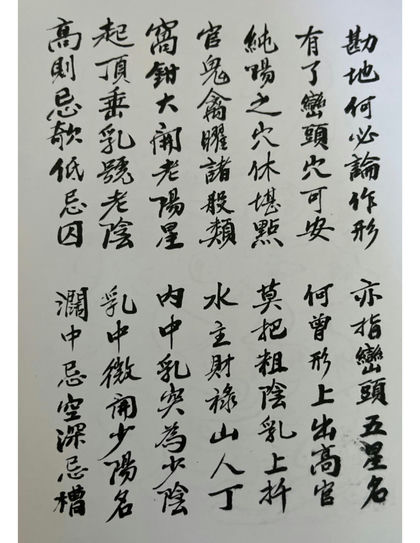 勘地何必論作形
亦指巒頭五星名
有了巒頭穴可安
何曾形上出高官
純陽之穴休堪點
莫把粗陰乳上扦
官鬼禽曜諸般類
水主財祿山人丁
窩鉗大開老陽星
內中乳突為少陰
起頂垂乳號老陰
乳中微開少陽名
高則忌欹低忌囚
濶中忌空深忌槽